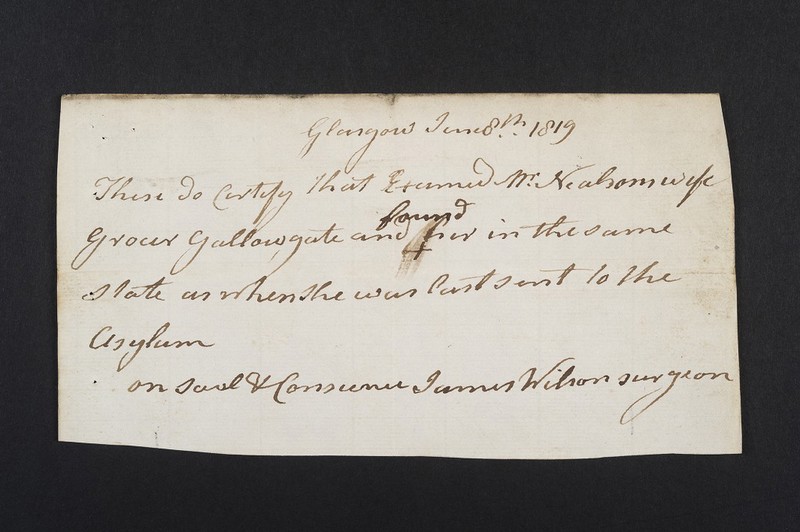 Glasgow June 8th. 1819
These do Certify that Examed Mr. Nealsons wife
Grocer Gallowgate and found her in the same
state as when she was last sent to the
Asylum
on saol & Consience James Wilson surgeon